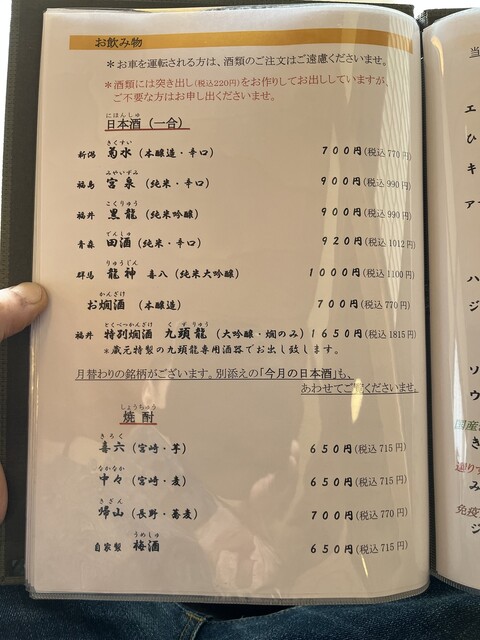 お飲み物
＊お車を運転される方は、酒類のご注文はご遠慮くださいませ。
＊酒類には突き出し(税込220円)をお作りしてお出ししていますが、
ご不要な方はお申し出くださいませ。
にほんしゅ
日本酒（一合）
きくすい
新潟 菊水（本醸造・辛口） 700円(税込 770円)
みやいずみ
福島 宮泉（純米・辛口） 900円(税込 990円)
こくりゅう
福井 黒龍（純米吟醸） 900円(税込 990円)
でんしゅ
青森 田酒（純米・辛口） 920円(税込 1012円)
りゅうじん
群馬 龍神 喜八（純米大吟醸） 1000円(税込 1100円)
かんざけ
お燗酒（本醸造） 700円(税込 770円)
とくべつかんざけ くずりゅう
福井 特別燗酒 九頭龍（大吟醸・燗のみ） 1650円(税込 1815円)
＊蔵元特製の九頭龍専用酒器でお出し致します。
月替わりの銘柄がございます。別添えの「今月の日本酒」も、
あわせてご覧くださいませ。
しょうちゅう
焼酎
きろく
喜六（宮崎・芋） 650円(税込 715円)
なかなか
中々（宮崎・麦） 650円(税込 715円)
きざん
帰山（長野・蕎麦） 700円(税込 770円)
うめしゅ
自家製 梅酒 650円(税込 715円)
当
エ
ひ
キ
ア
ハ
ジ
ソ
ウ
国産
き
み
免疫
ジ